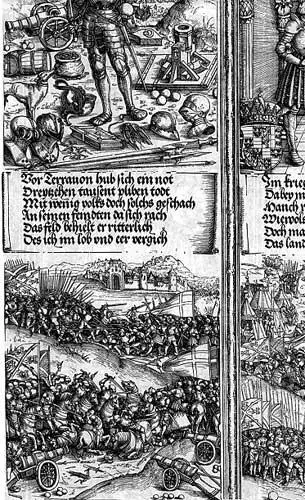 Vor Terravon hub sich ein not
Dreytzehen tausent pliben todt
Mit wenig volks doch solchs geschach
An seinen feindten da sich rach
Das feld behielt er ritterlich
Des ich im lob vnd eer vergich
Im krieg
Dabey
Hanch
Doch ma
Das lan